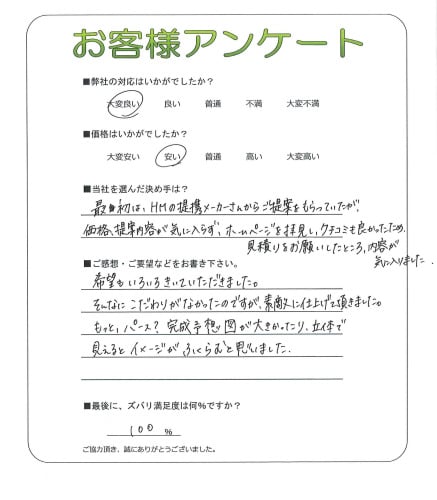 お客様アンケート
■弊社の対応はいかがでしたか？
大変良い 良い 普通 不満 大変不満
■価格はいかがでしたか？
大変安い 安い 普通 高い 大変高い
■当社を選んだ決め手は？
最初は、HMの提携メーカーさんからご提案をもらっていたが、
価格、提案内容が気に入らず、ホームページを拝見し、クチコミも良かったため、
見積りをお願いしたところ、内容が
気に入りました。
■ご感想・ご要望などをお書き下さい。
希望もいろいろきいていただきました。
そんなにこだわりがなかったのですが、素敵に仕上げて頂きました。
もっと、パース？完成予想図が大きかったり、立体で
見えるとイメージがふくらむと思いました.
■最後に、ズバリ満足度は何％ですか？
100 %
ご協力頂き、誠にありがとうございました。